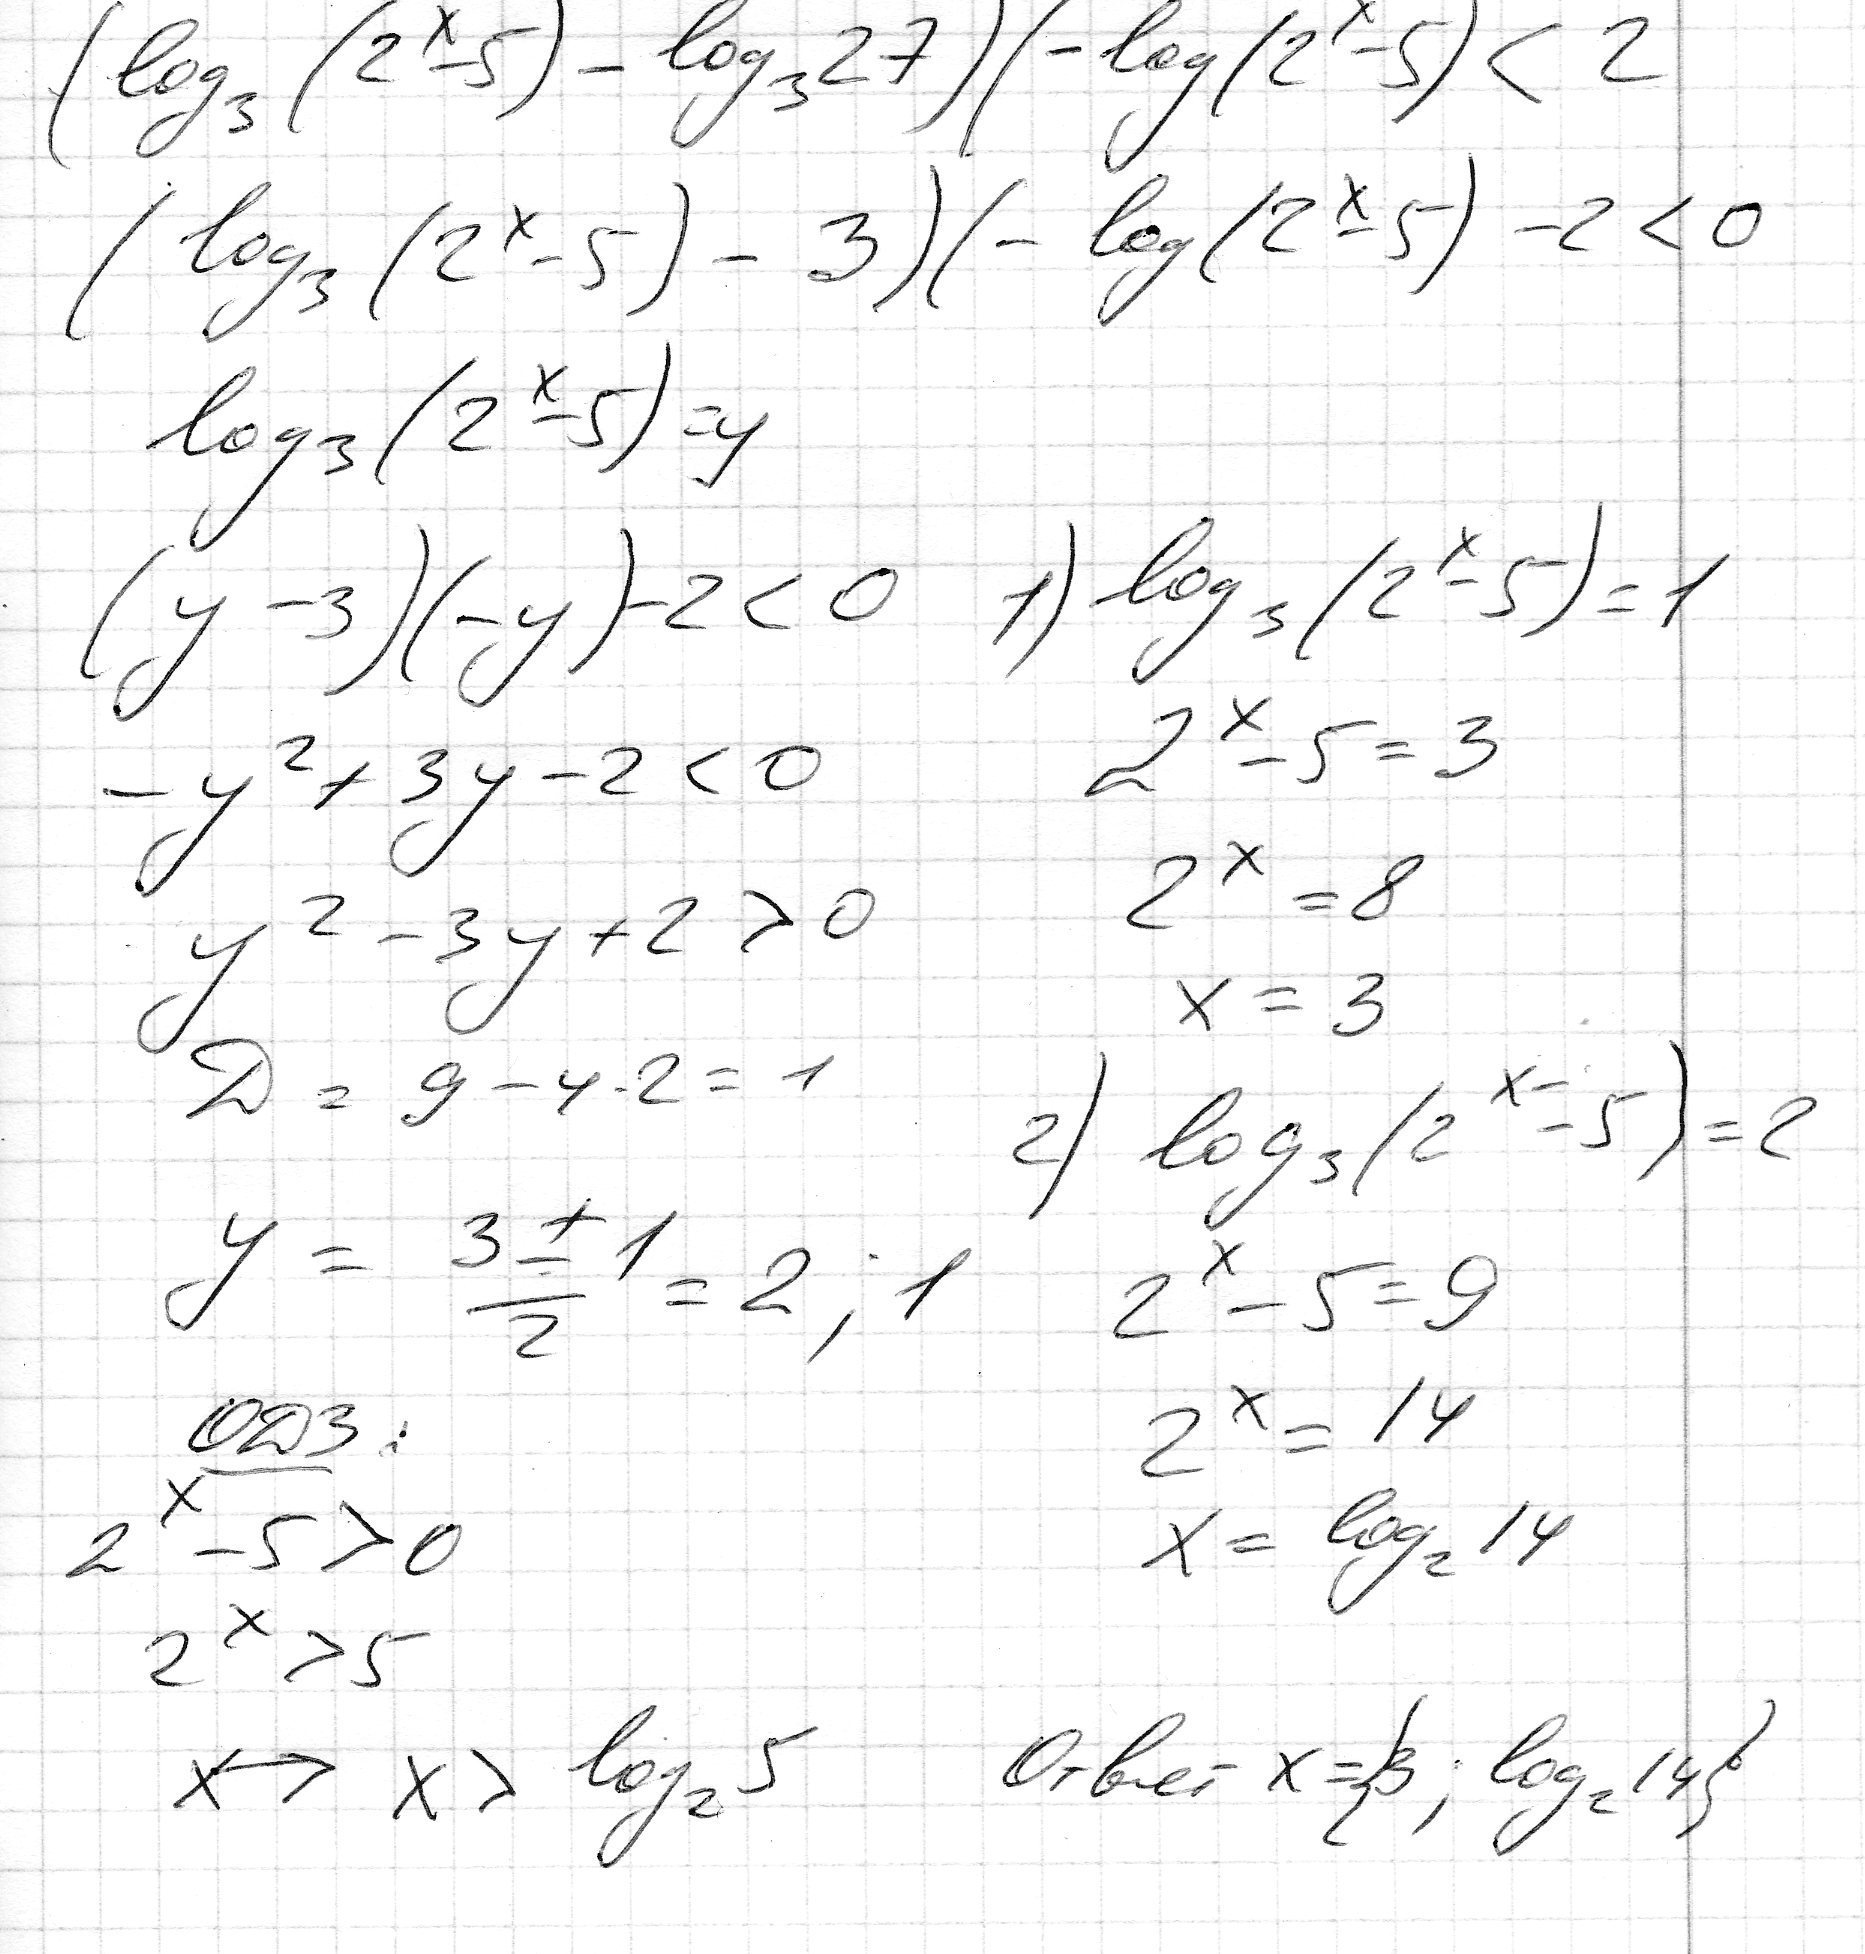 (log₃(2ˣ-5) - log₃27)(-log(2ˣ-5) < 2
(log₃(2ˣ-5) - 3)(-log(2ˣ-5) -2 < 0
log₃(2ˣ-5) = y
(y-3)(-y)-2 < 0
-y²+3y-2 < 0
y²-3y+2 > 0
D = 9-4·2 = 1
y = (3±1)/2 = 2; 1
ОДЗ:
2ˣ-5 > 0
2ˣ > 5
x → x > log₂5
1) log₃(2ˣ-5) = 1
2ˣ-5 = 3
2ˣ = 8
x = 3
2) log₃(2ˣ-5) = 2
2ˣ-5 = 9
2ˣ = 14
x = log₂14
Ответ x = {3; log₂14}